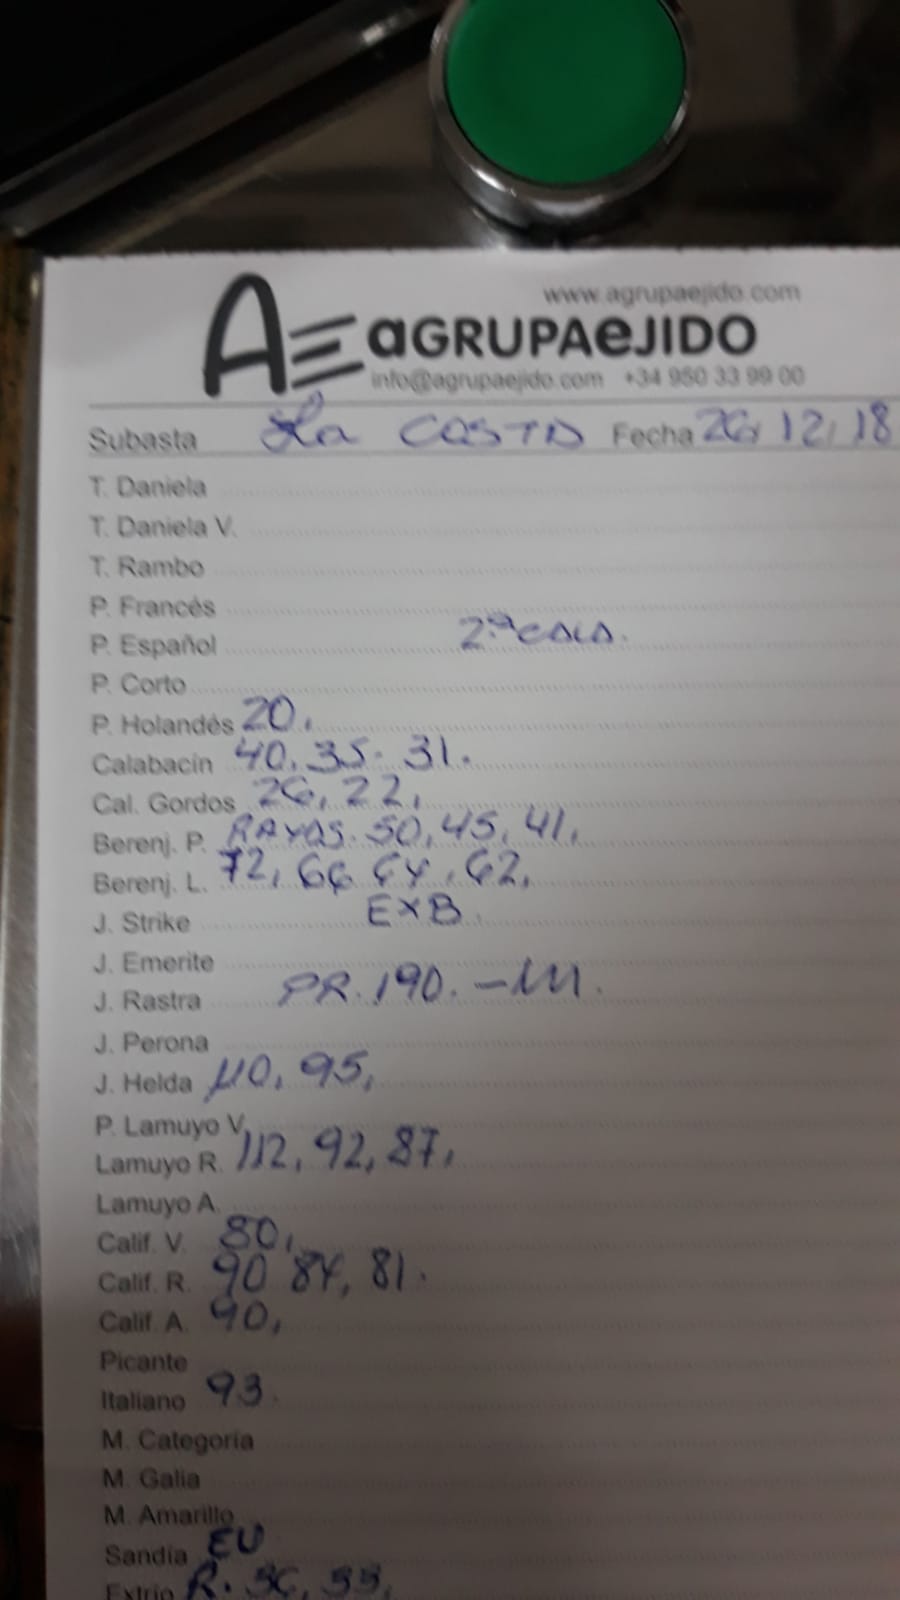 www.agrupaejido.com
AE aGRUPAeJIDO
info@agrupaejido.com +34 950 33 99 00
Subasta La COSTA Fecha 26, 12, 18
T. Daniela
T. Daniela V.
T. Rambo
P. Francés
P. Español 2ª CALA.
P. Corto
P. Holandés 20,
Calabacín 40, 35. 31.
Cal. Gordos 26, 22,
Berenj. P. RAYAS. 50, 45, 41,
Berenj. L. 72, 66 64, 62,
J. Strike EXB.
J. Emerite
J. Rastra PR. 190.
J. Perona
J. Helda 110, 95,
P. Lamuyo V.
Lamuyo R. 112, 92, 87,
Lamuyo A.
Calif. V. 80,
Calif. R. 90 84, 81.
Calif. A. 90,
Picante
Italiano 93.
M. Categoría
M. Galia
M. Amarillo
Sandía EU
Extrio R. 36, 33,